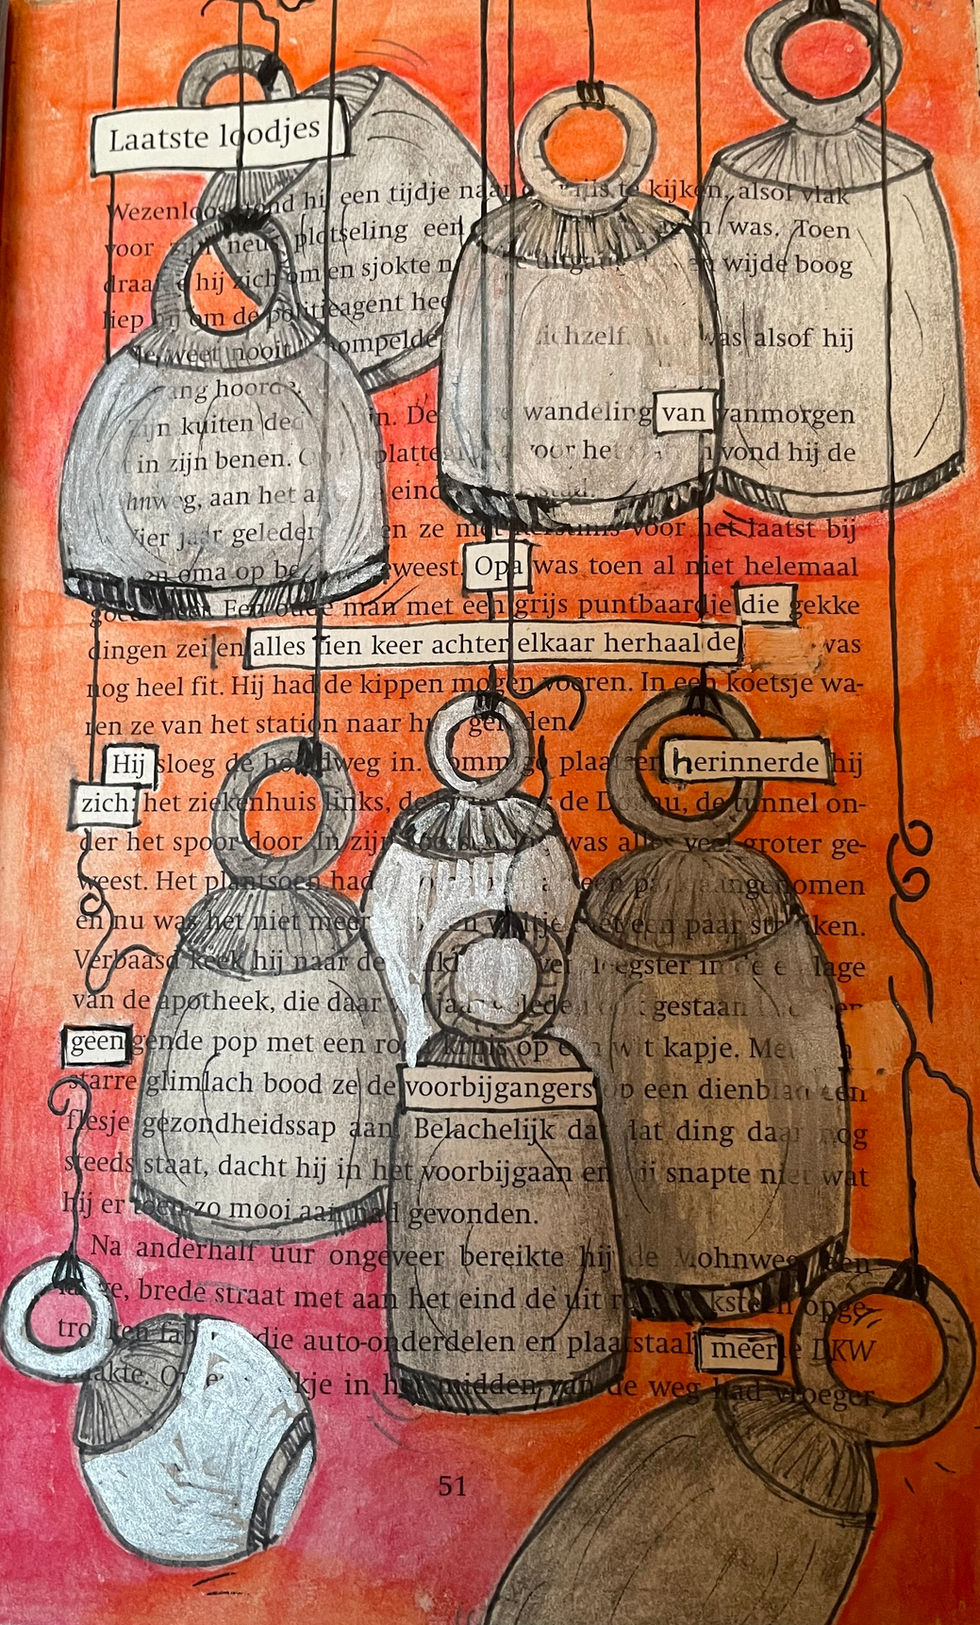 Laatste loodjes
Wezenloos stond hij een tijdje naar te kijken, alsof vlak
voor zijn neus plotseling een was. Toen
draaide hij zich om en sjokte wijde boog
liep hij om de politieagent heen
Je weet nooit mompelde zichzelf. was alsof hij
hoorde
Zijn kuiten in. De wandeling van vanmorgen
in zijn benen. platte voor het avond hij de
aan het eind
Vier jaar geleden ze met voor het laatst bij
en oma op geweest. Opa was toen al niet helemaal
goed Een oude man met een grijs puntbaardje die gekke
dingen zei en alles tien keer achter elkaar herhaalde was
nog heel fit. Hij had de kippen mogen voeren. In een koetsje wa-
ren ze van het station naar gereden.
Hij sloeg de hoofdweg in. Sommige plaatsen herinnerde hij
zich: het ziekenhuis links, de de Donau, de tunnel on-
der het spoor door. In zijn was alles veel groter ge-
weest. Het plantsoen had een park aangenomen
en nu was het niet meer een veldje met een paar struiken.
Verbaasd keek hij naar de etalage
van de apotheek, die daar jaar geleden ook gestaan
geen gende pop met een rood kruis op een wit kapje. Met
starre glimlach bood ze de voorbijgangers op een dienblad een
flesje gezondheidssap aan. Belachelijk dat dat ding daar nog
steeds staat, dacht hij in het voorbijgaan en hij snapte niet wat
hij er toen zo mooi aan had gevonden.
Na anderhalf uur ongeveer bereikte hij de Mohnweg, een
lange, brede straat met aan het eind de uit opge-
trokken die auto-onderdelen en plaatstaal meer DKW
maakte. kje in het midden van de weg had vroeger
51